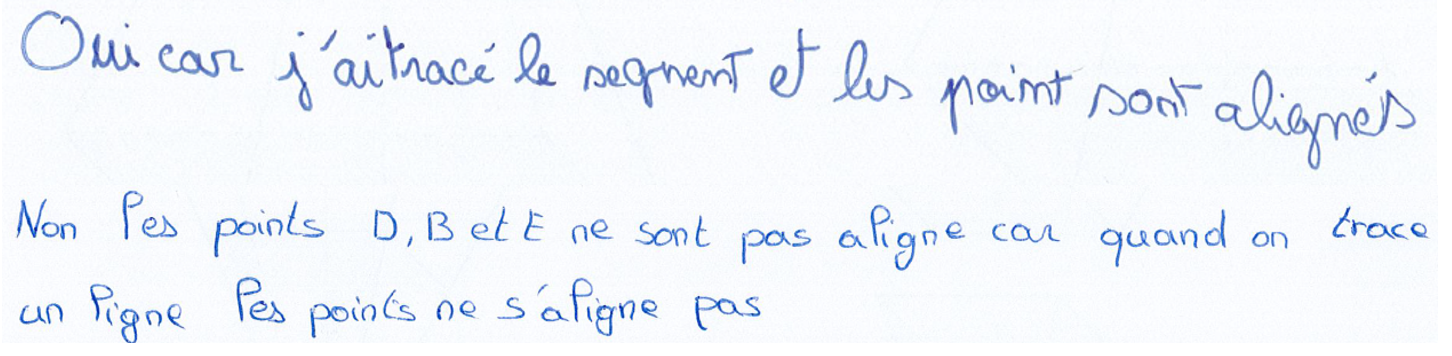 Oui car j'ai tracé le segment et les point sont alignés
Non les points D, B et E ne sont pas aligne car quand on trace
un ligne les points ne s'aligne pas